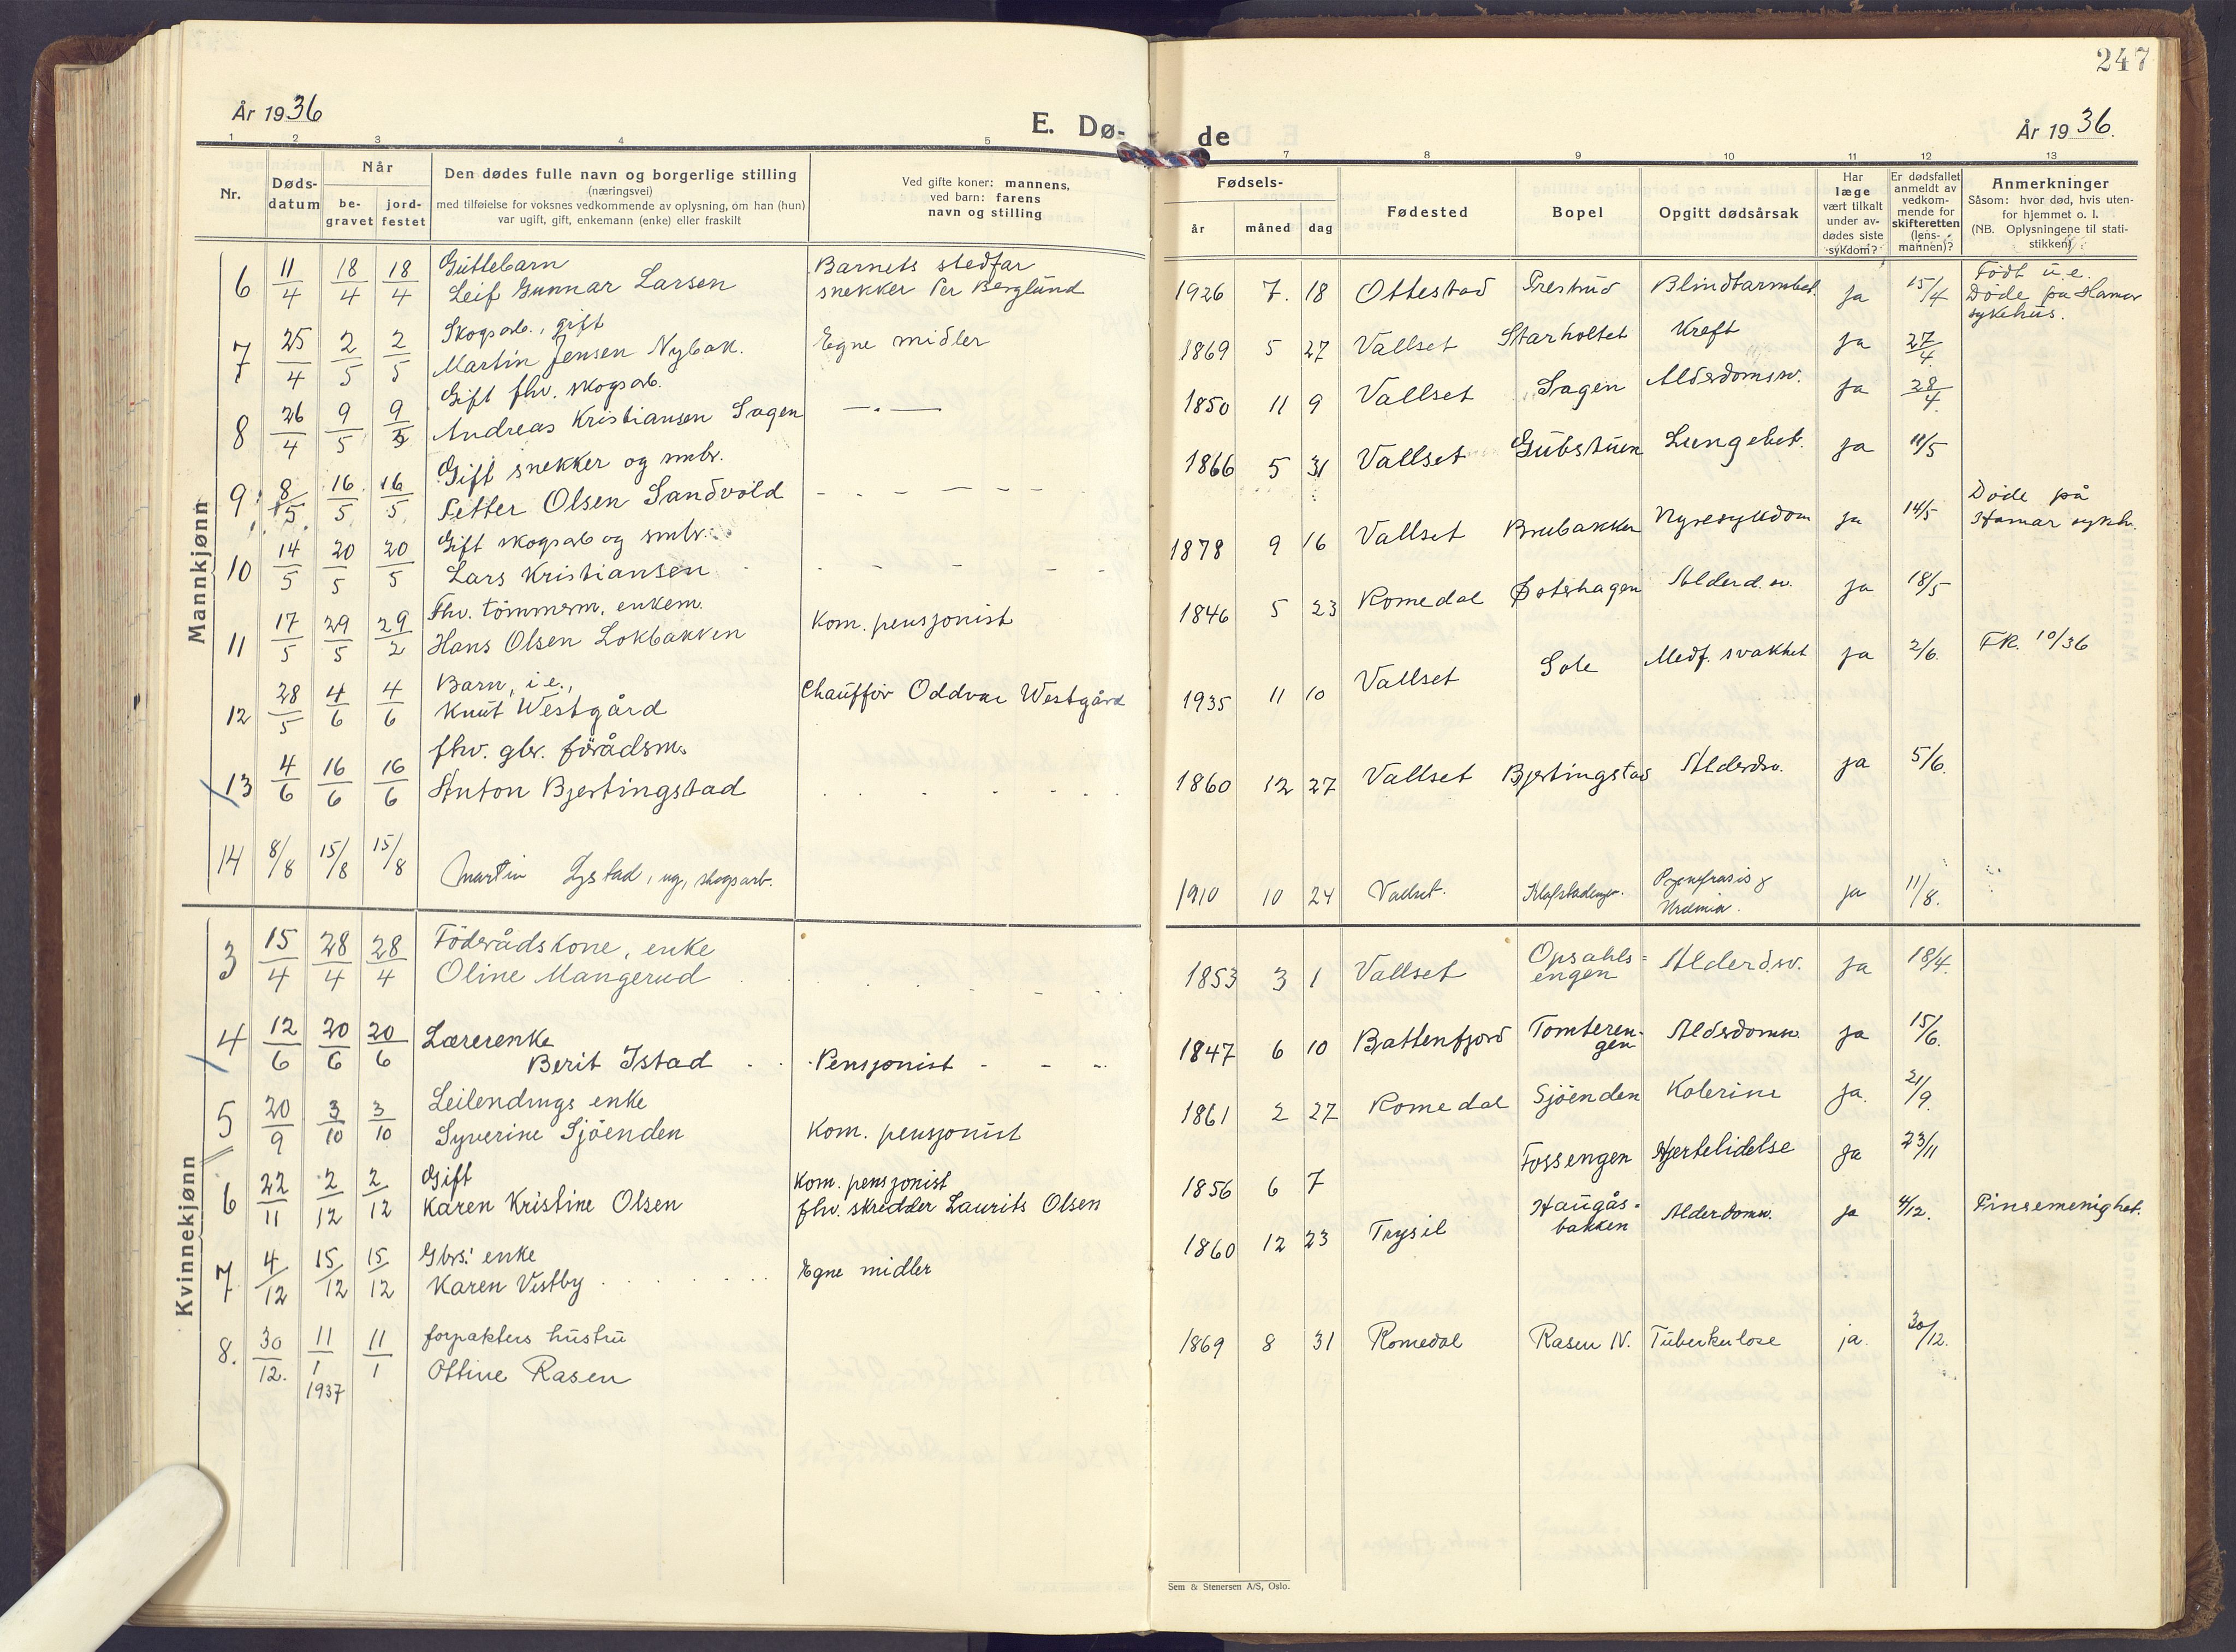 247
År 1936
E. Dø-
de
År 1936.
1 2 3 4 5
7 8 9 10 11 12 13
Nr.
Døds-
datum
Når
be-
gravet
jord-
festet
Den dødes fulle navn og borgerlige stilling
(næringsvei)
med tilføielse for voksnes vedkommende av oplysning, om han (hun)
var ugift, gift, enkemann (enke) eller fraskilt
Ved gifte koner: mannens,
ved barn: farens
navn og stilling
Fødsels-
år måned dag
Fødested
Bopel
Opgitt dødsårsak
Har
læge
vært tilkalt
under av-
dødes siste
sykdom?
Er dødsfallet
anmeldt av
vedkom-
mende for
skifteretten
(lens-
mannen)?
Anmerkninger
Såsom: hvor død, hvis uten-
for hjemmet o. l.
(NB. Oplysningene til stati-
stikken)
Mannkjønn
6 11/4 18/4 18/4 Guttebarn
Leif Gunnar Larsen
Barnets stedfar
snekker Per Berglund
1926 7. 18 Ottestad Prestrud Blindtarmbet. ja 15/4
Født u.e.
Døde på Hamar
sykehus.
7 25/4 2/5 2/5 Skogsarb., gift
Martin Jensen Nybak.
Egne midler
1869 5 27 Vallset Starholtet Kreft ja 27/4
8 26/4 9/5 9/5 Gift fhv. skogsarb.
Andreas Kristiansen Sagen
—.—
1850 11 9 Vallset Sagen Alderdomssv. ja 28/4
9 8/5 16/5 16/5 Gift snekker og smbr.
Petter Olsen Sandvold
1866 5 31 Vallset Gubstuen Lungebet. ja 11/5
10 14/5 20/5 20/5 Gift skogsarb og smbr.
Lars Kristiansen
1878 9 16 Vallset Brubakken Nyresykdom ja 14/5
Døde på
Hamar sykh.
11 17/5 29/5 29/2 Fhv. tømmerm. enkem.
Hans Olsen Lokbakken
Kom. pensjonist
1846 5 23 Romedal Østerhagen Alderd.sv. ja 18/5
12 28/5 4/6 4/6 Barn, i e.,
Knut Westgård
Chauffør Oddvar Westgård
1935 11 10 Vallset Sole Medf. svakhet ja 2/6. FR. 10/36
13 4/6 16/6 16/6 fhv. gbr. förådsm.
Anton Bjertingstad
1860 12 27 Vallset Bjertingstad Alderdsv. ja 5/6.
14 8/8 15/8 15/8 Martin Lystad, ug, skogsarb.
1910 10 24 Vallset. ja 11/8.
Kvinnekjønn
3 15/4 28/4 28/4 Föderådskone, enke
Oline Mangerud
1853 3 1 Vallset Opsahls=
engen Alderd.sv. ja 18/4.
4 12/6 20/6 20/6 Lærerenke
Berit Istad
Pensjonist
1847 6 10 Battenfjord Tomteren-
gen Alderdomsv. ja 15/6.
5 20/9 3/10 3/10 Leilendings enke
Syverine Sjöenden
Kom. pensjonist
1861 2 27 Romedal Sjöenden Kolerine ja. 21/9.
6 22/11 2/12 2/12 Gift
Karen Kristine Olsen
Kom. pensjonist
fhv. skredder Laurits Olsen
1856 6 7 Fossengen Hjertelidelse ja 23/11
7 4/12 15/12 15/12 Gbrs. enke
Karen Vestby
Egne midler
1860 12 23 Trysil Haugås-
bakken Alderdomsv. ja 4/12. Pinsemenighet.
8. 30/12. 11/1 1937 11/1 forpakters hustru
Ottine Rasen
1869 8 31 Romedal Rasen N. Tuberkulose ja. 30/12.
Sem & Stenersen A/S, Oslo.